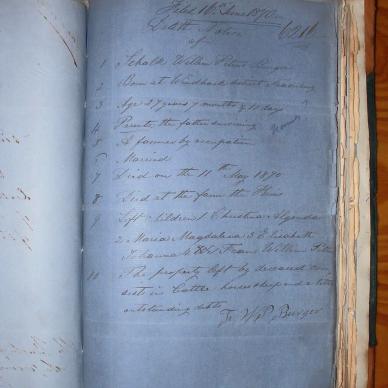 Filed 16th June 1870
Death Notice 6211
of
1 Schalk Willem Petrus Burger
2 Born at Windhoek district
3 Age 37 years 7 months & 11 days
4 Parents, the father surviving
5 A farmer by occupation
6 Married
7 Died on the 11th May 1870
8 Died at the farm the
9 Left children 1 Christina
2 Maria Magdalena 3 Elizabeth
Johanna 4 Frans Willem
10 The property left by deceased con
sists in Cattle horses sheep and a little
outstanding debts
F. W. P. Burger